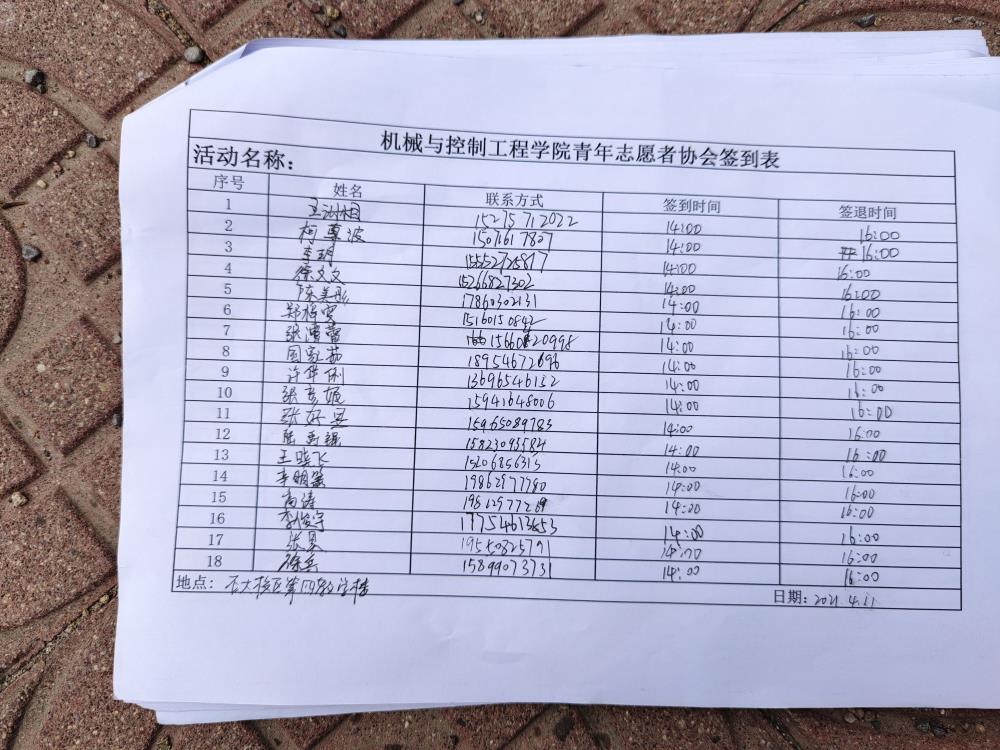 机械与控制工程学院青年志愿者协会签到表
活动名称：
序号 姓名 联系方式 签到时间 签退时间
1 15275712022 14:00 16:00
2 柯章波 15071617827 14:00 16:00
3 李玥 15552725817 14:00 16:00
4 徐文文 15266827302 14:00 16:00
5 陈美彤 17860302131 14:00 16:00
6 15160150842 14:00 16:00
7 张 14:00 16:00
8 周 18954672696 14:00 16:00
9 许 13696546132 14:00 16:00
10 张彦妮 15941648006 14:00 16:00
11 张好安 15965089783 14:00 16:00
12 15823093584 14:00 16:00
13 王晓飞 15206856315 14:00 16:00
14 李明 19862977780 14:00 16:00
15 高涛 14:00 16:00
16 李俊宇 14:00 16:00
17 张昊 19550825791 14:00 16:00
18 徐 15899073731 14:00 16:00
地点： 校区第四教学楼 日期：2021.4.11